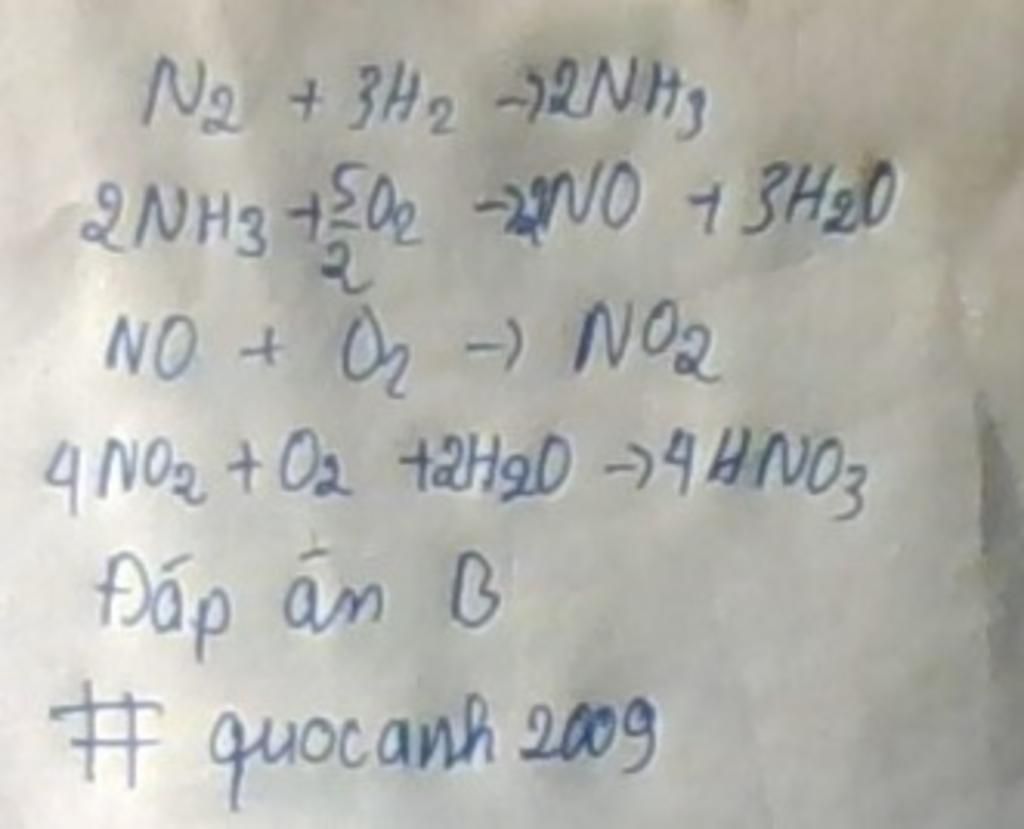 N2 + 3H2 → 2NH3
2NH3 + 5/2 O2 → 2NO + 3H2O
NO + O2 → NO2
4NO2 + O2 + 2H2O → 4HNO3
Đáp án B
# quocanh 2009